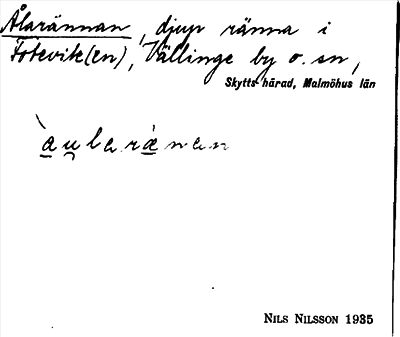 Ålarännan, djup ränna i
Fotevik(en), Vällinge by o. sn,
Skytts härad, Malmöhus län
`au̯laræ̀nan
NILS NILSSON 1935